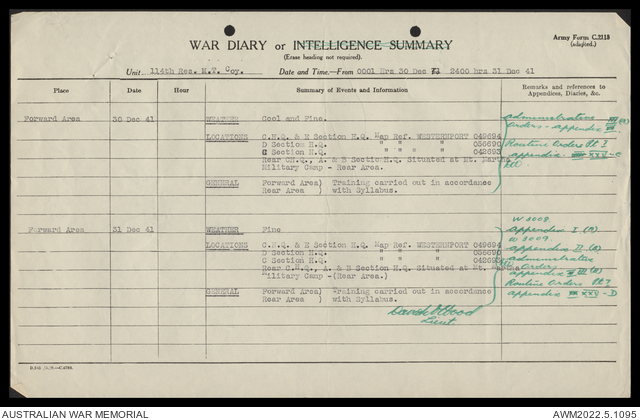 Army Form C.2118
(adapted.)
WAR DIARY or INTELLIGENCE SUMMARY
(Erase heading not required).
Unit 114th Res. M.T. Coy. Date and Time—From 0001 Hrs 30 Dec 2400 hrs 31 Dec 41
Place Date Hour Summary of Events and Information Remarks and references to Appendices, Diaries, &c.
Forward Area 30 Dec 41 WEATHER Cool and Fine.
administrative
orders - appendix
LOCATIONS C.H.Q. & E Section H.Q. Map Ref. WESTERNPORT 049694
D Section H.Q. " " " 056690
C Section H.Q. " " " 042693
Rear CHQ., A. & B Section H.Q. Situated at Mt. Martha
Military Camp - Rear Area.
Routine Orders Pt I
appendix XXV - C
GENERAL Forward Area) Training carried out in accordance
Rear Area ) with Syllabus.
Forward Area 31 Dec 41 WEATHER Fine
W 3008
appendix I (a)
W 3009
appendix II (a)
administrative
orders
appendix III (a)
Routine orders Pt I
appendix XXV - D
LOCATIONS C.H.Q. & E Section H.Q. Map Ref. WESTERNPORT 049694
D Section H.Q. " " " 056690
C Section H.Q. " " " 042693
Rear C.H.Q., A. & B Section H.Q. Situated at Mt.
Military Camp -(Rear Area.)
GENERAL Forward Area) Training carried out in accordance
Rear Area ) with Syllabus.
Wood
Lieut
AUSTRALIAN WAR MEMORIAL
AWM2022.5.1095